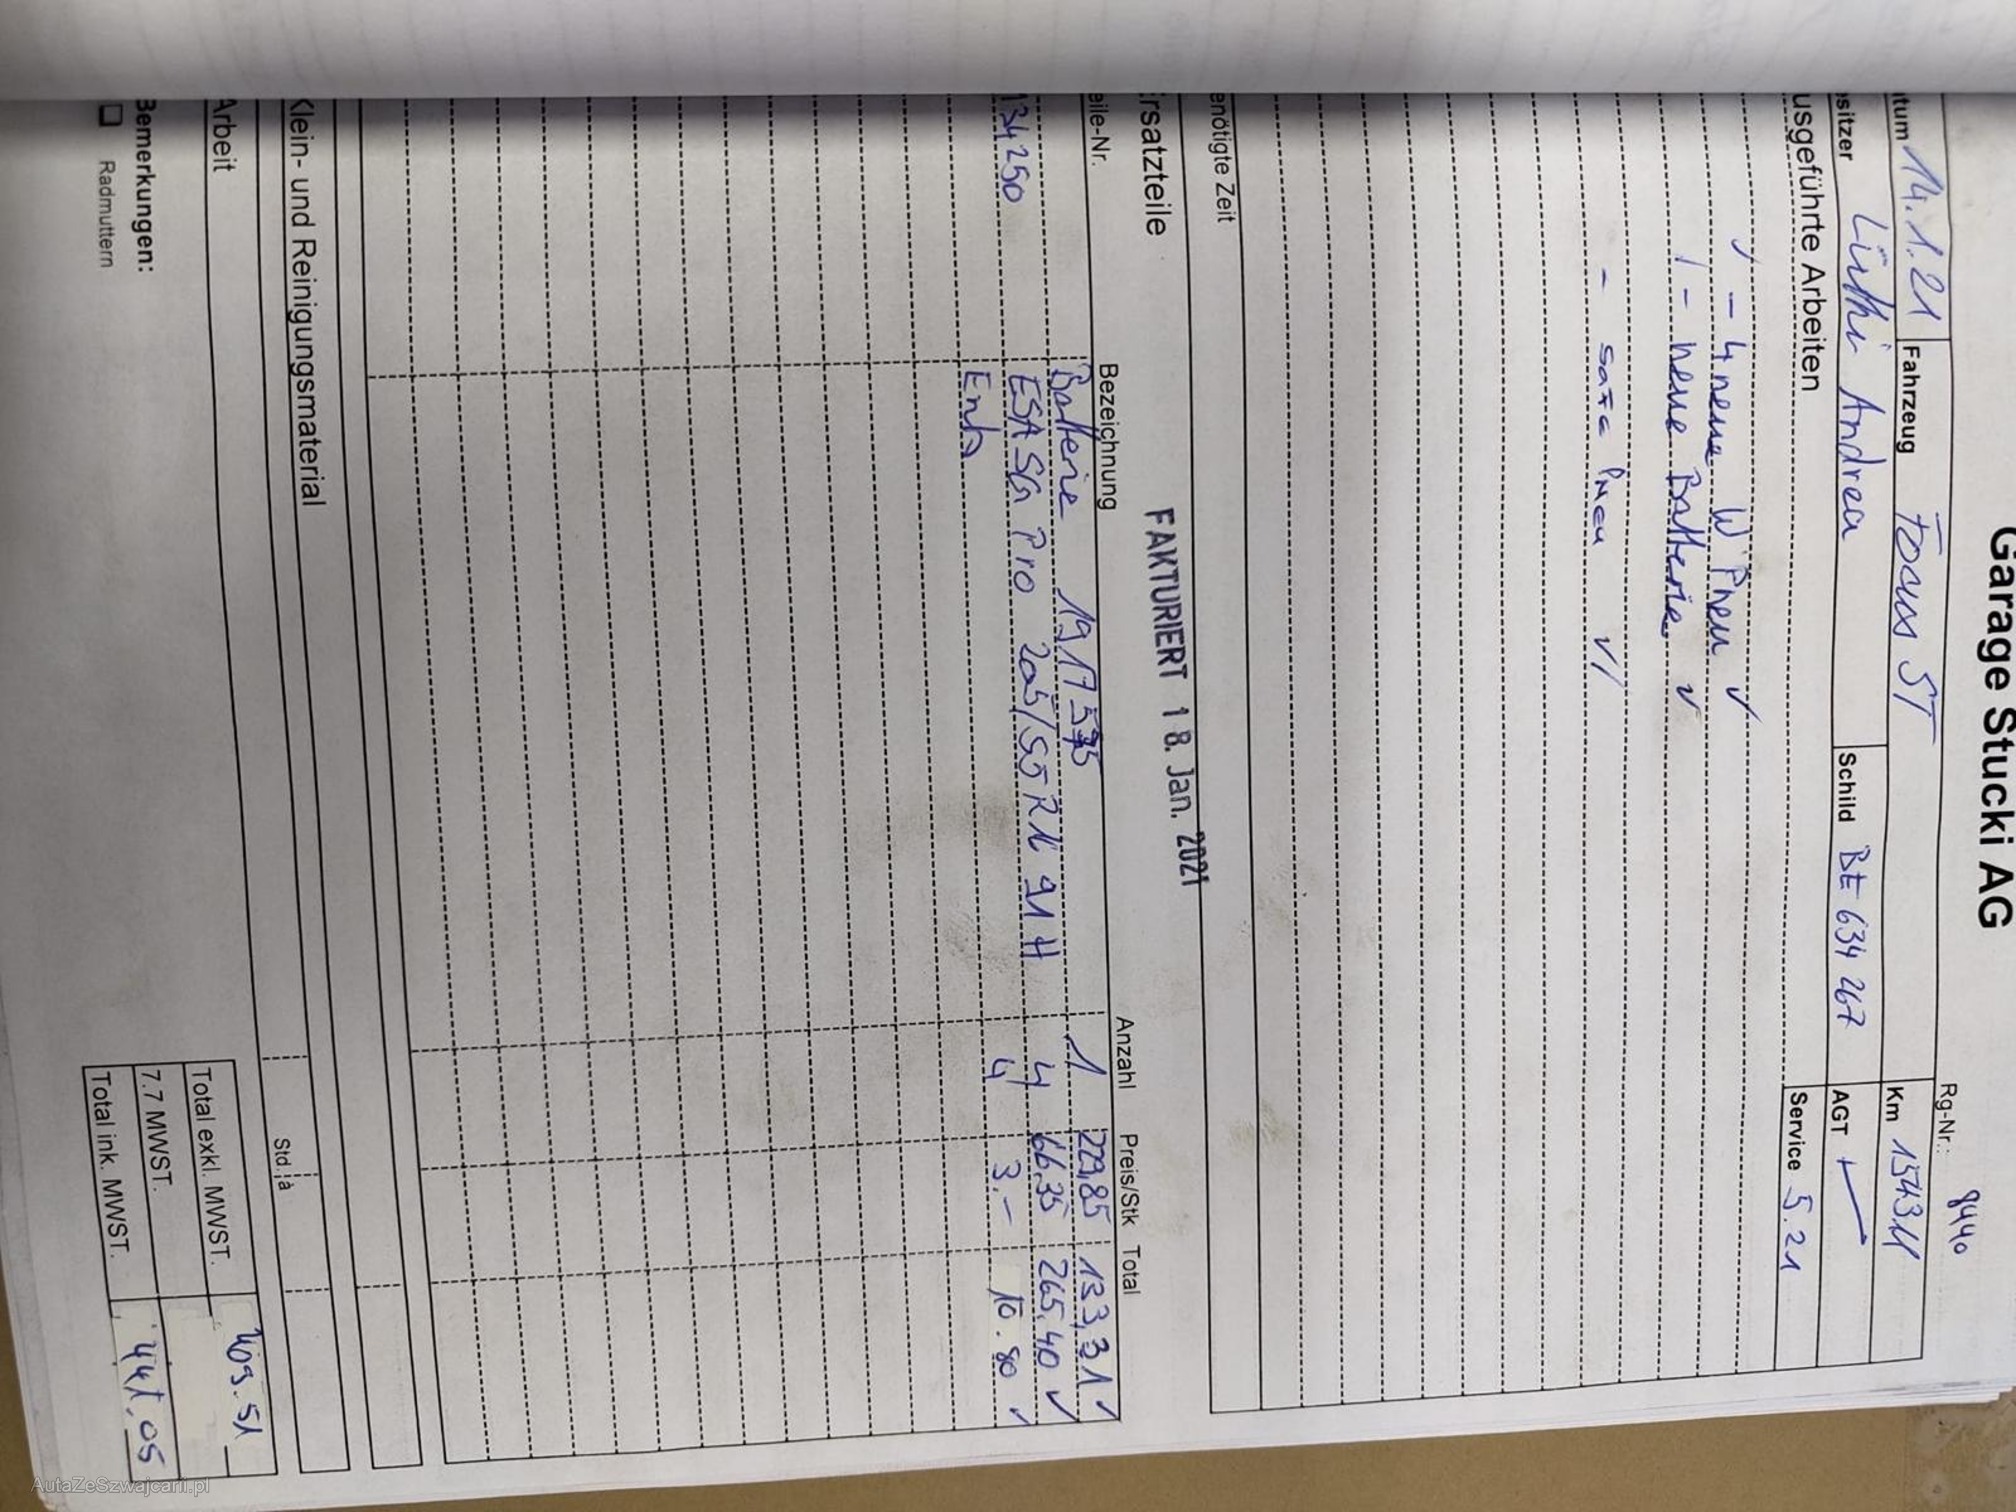 Garage Stucki AG
Rg-Nr.: 8440
tum 14.1.21 Fahrzeug Focus ST Km 154311
sitzer Lüthi Andrea Schild BE 634 267 AGT
usgeführte Arbeiten Service 5.21
✓ - 4 neue W Pneu ✓
/ - neue Batterie ✓
- Pneu
enötigte Zeit
FAKTURIERT 18. Jan. 2021
rsatzteile
eile-Nr. Bezeichnung Anzahl Preis/Stk Total
Batterie 1 229,85 133,31 ✓
134250 ESA SG Pro 205/55 R16 91 H 4 66,35 265.40 ✓
Ents 4 3.- 10.80 ✓
Klein- und Reinigungsmaterial
Std. à
Arbeit
Total exkl. MWST. 409.51
Bemerkungen: 7.7 MWST.
Radmuttern Total ink. MWST. 441,05
AutaZeSzwajcarii.pl